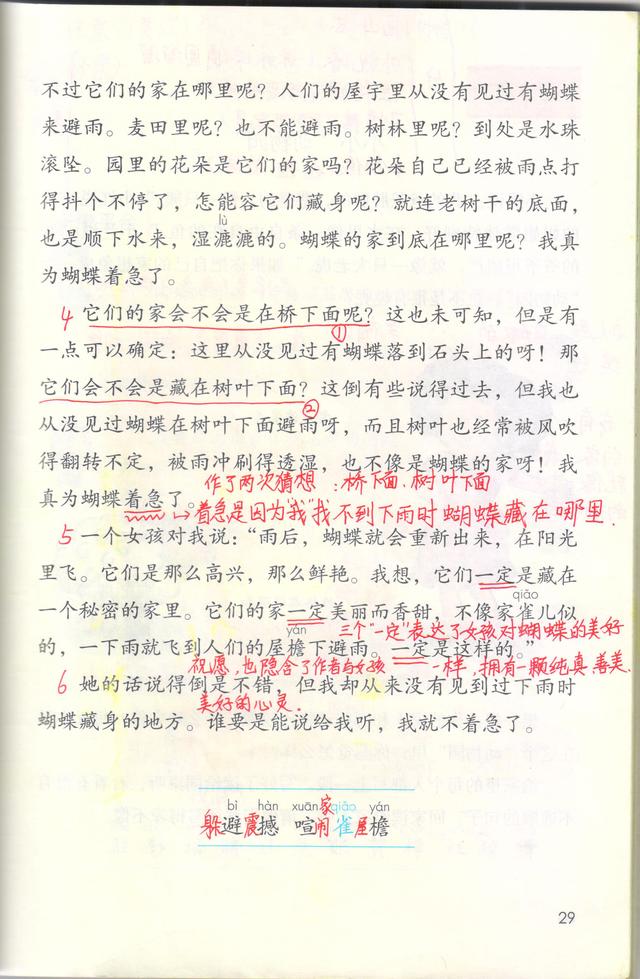 不过它们的家在哪里呢？人们的屋宇里从没有见过有蝴蝶
来避雨。麦田里呢？也不能避雨。树林里呢？到处是水珠
滚坠。园里的花朵是它们的家吗？花朵自己已经被雨点打
得抖个不停了，怎能容它们藏身呢？就连老树干的底面，
lù
也是顺下水来，湿漉漉的。蝴蝶的家到底在哪里呢？我真
为蝴蝶着急了。
4 它们的家会不会是在桥下面呢？这也未可知，但是有
①
一点可以确定：这里从没见过有蝴蝶落到石头上的呀！那
它们会不会是藏在树叶下面？这倒有些说得过去，但我也
②
从没见过蝴蝶在树叶下面避雨呀，而且树叶也经常被风吹
得翻转不定，被雨冲刷得透湿，也不像是蝴蝶的家呀！我
作了两次猜想：桥下面、树叶下面
真为蝴蝶着急了。
着急是因为"我"找不到下雨时蝴蝶藏在哪里.
5 一个女孩对我说：“雨后，蝴蝶就会重新出来，在阳光
里飞。它们是那么高兴，那么鲜艳。我想，它们一定是藏在
qiǎo
一个秘密的家里。它们的家一定美丽而香甜，不像家雀儿似
yán
三个"一定"表达了女孩对蝴蝶的美好
的，一下雨就飞到人们的屋檐下避雨。一定是这样的。”
祝愿,也隐含了作者与女孩一样,拥有一颗纯真、善美、
6 她的话说得倒是不错，但我却从来没有见到过下雨时
美好的心灵.
蝴蝶藏身的地方。谁要是能说给我听，我就不着急了。
bì hàn xuān 家qiǎo yán
躲避震撼 喧闹雀屋檐
29